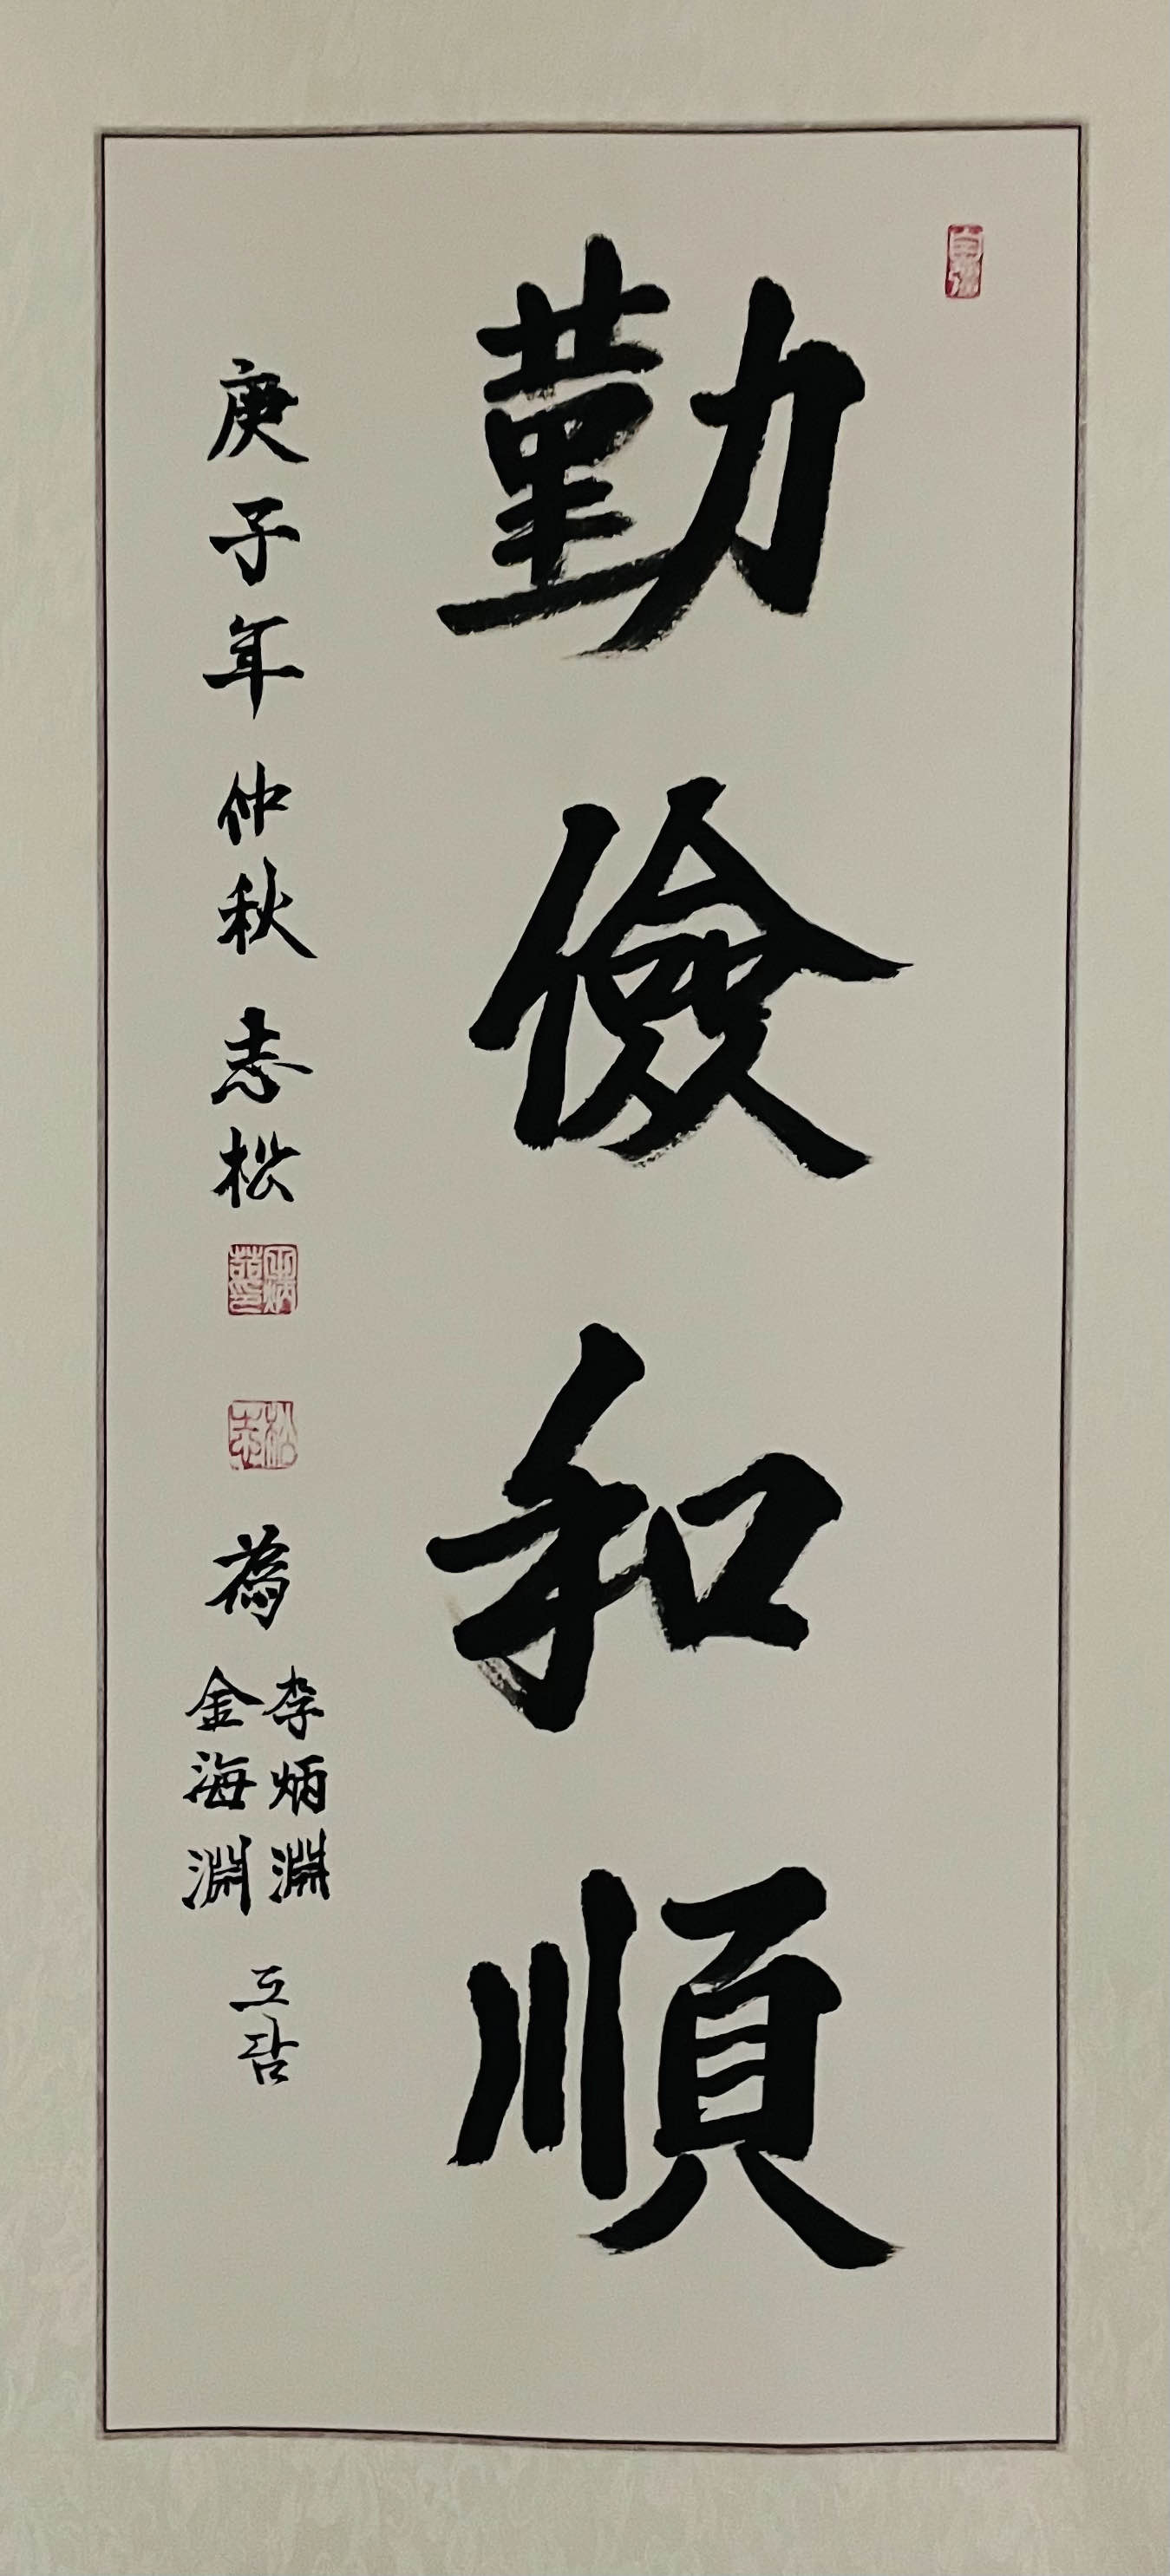 勤儉和順
庚子年 仲秋 志松
為
李炳淵
金海淵
도담